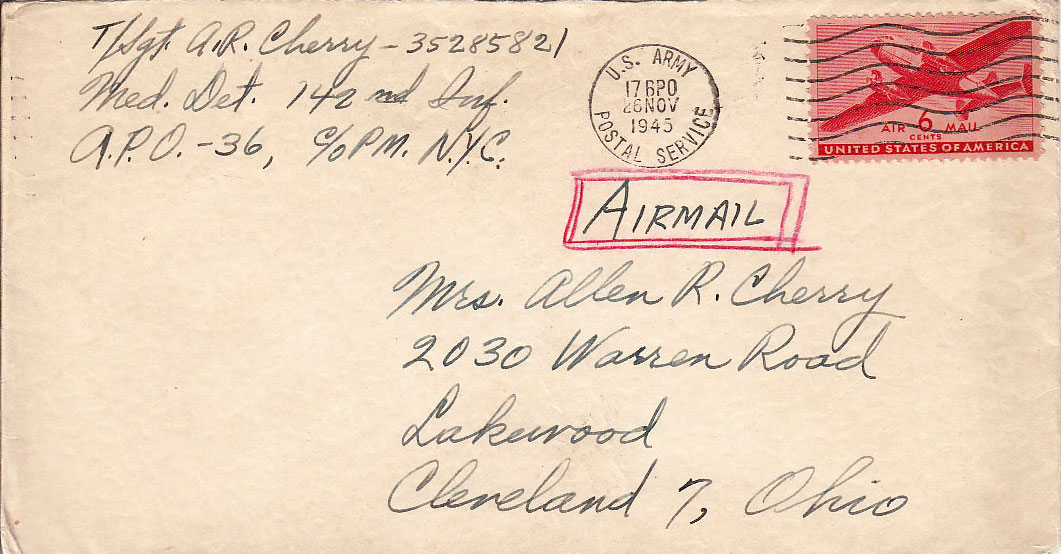 T/Sgt. A.R. Cherry - 35285821
Med. Det. 142nd Inf.
A.P.O. - 36, c/o P.M. N.Y.C.
U.S. ARMY
17 BPO
26 NOV
1945
POSTAL SERVICE
AIR 6 MAIL
CENTS
UNITED STATES OF AMERICA
AIRMAIL
Mrs. Allen R. Cherry
2030 Warren Road
Lakewood
Cleveland 7, Ohio